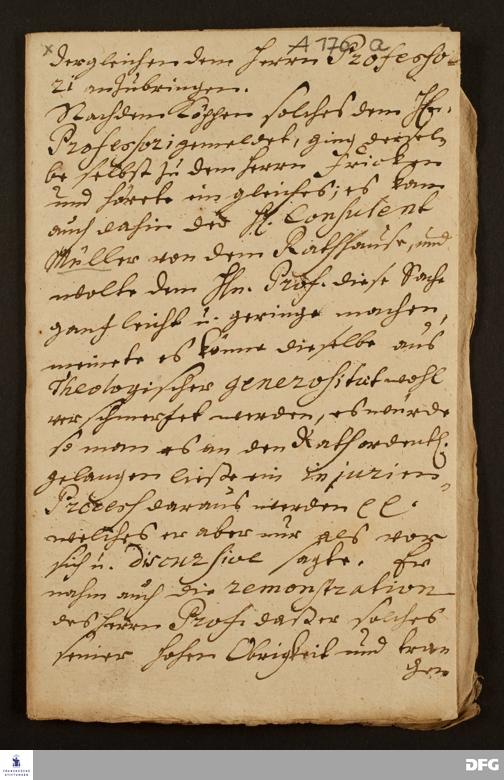 A 176 a
dergleichen dem Herrn Professo-
ri anzubringen.
Nachdem Köppen solches dem Hn.
Professori gemeldet, ging dersel-
be selbst zu dem Herrn Fricken
und hörete ein gleiches; es kam
auch dahin der H. Consulent
Müller von dem Rathhause, und
wolte dem Hn. Prof. diese Sache
gantz leicht u. geringe machen,
meinete es könne dieselbe aus
Theologischer generositæt wohl
verschmertzet werden, es würde
so man es an den Rath ordentl.
gelangen ließe ein injurien-
Process daraus werden
welches er aber nur als vor
sich u. discursive sagte. Er
nahm auch die remonstration
des Herrn Prof. daß er solches
seiner hohen Obrigkeit und
FRANCKESCHE STIFTUNGEN
DFG